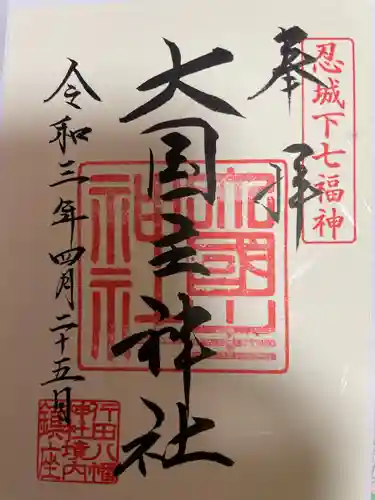 忍城下七福神
奉拝
大国主神社
令和三年四月二十五日
行田八幡
神社境内
鎮座